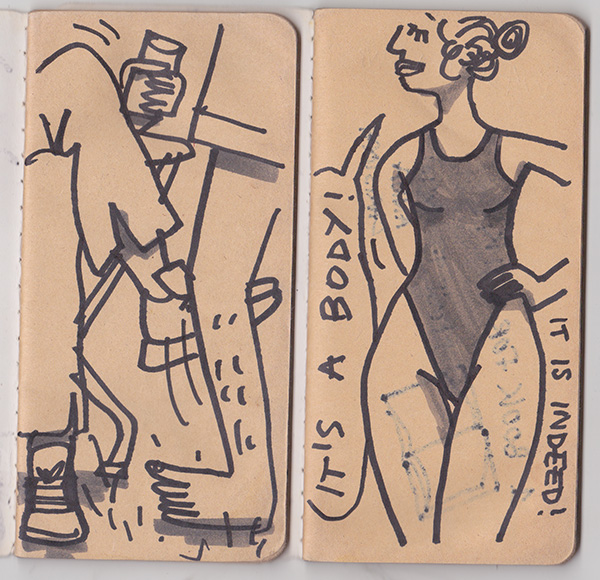 IT'S A BODY!
IT IS INDEED!